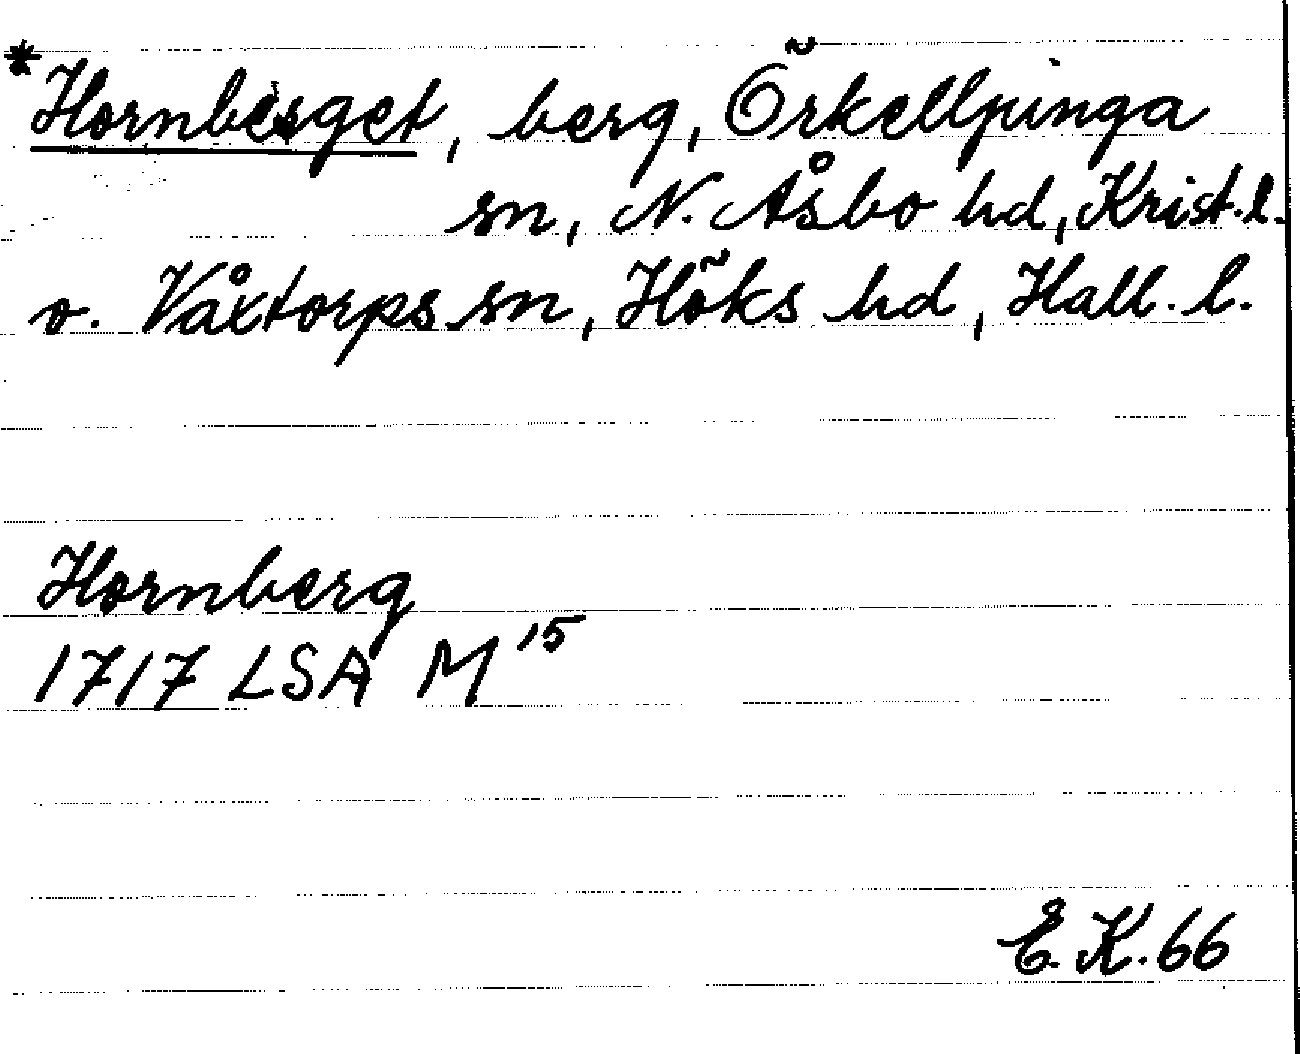 *Hornberget, berg, Örkelljunga
sn, N. Åsbo hd, Krist. l.
o. Våxtorps sn, Höks hd, Hall. l.
Hornberg
1717 LSA M 15
E. K. 66